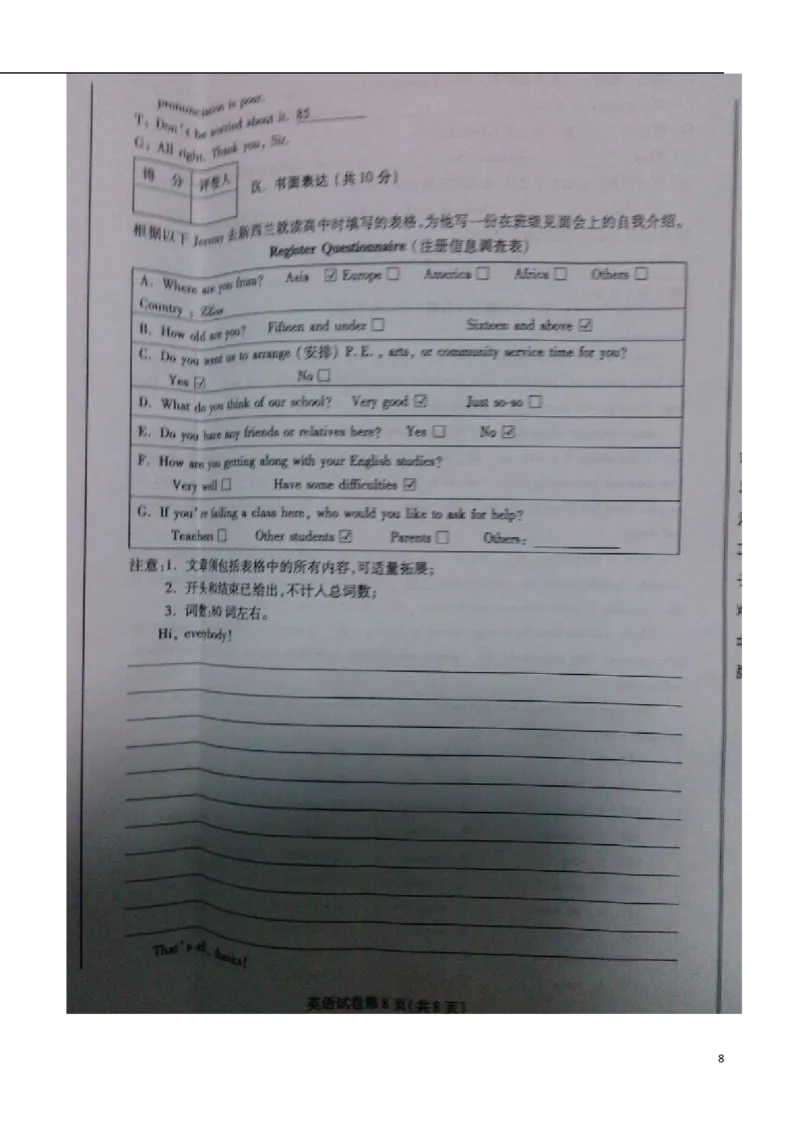 pronunciation is poor.
T: Don't be worried about it. 85
G: All right. Thank you, Sir.
得 分 评卷人
Ⅸ. 书面表达(共10分)
根据以下 Jeremy 去新西兰就读高中时填写的表格,为他写一份在班级见面会上的自我介绍。
Register Questionnaire(注册信息调查表)
A. Where are you from? Asia ☑ Europe □ America □ Africa □ Others □
Country:
B. How old are you? Fifteen and under □ Sixteen and above ☑
C. Do you want us to arrange(安排)P.E., arts, or community service time for you?
Yes ☑ No □
D. What do you think of our school? Very good ☑ Just so-so □
E. Do you have any friends or relatives here? Yes □ No ☑
F. How are you getting along with your English studies?
Very well □ Have some difficulties ☑
G. If you're failing a class here, who would you like to ask for help?
Teachers □ Other students ☑ Parents □ Others:
注意:1. 文章须包括表格中的所有内容,可适量拓展;
2. 开头和结束已给出,不计入总词数;
3. 词数:80词左右。
Hi, everybody!
That's all, thanks!
英语试卷第8页(共8页)
8